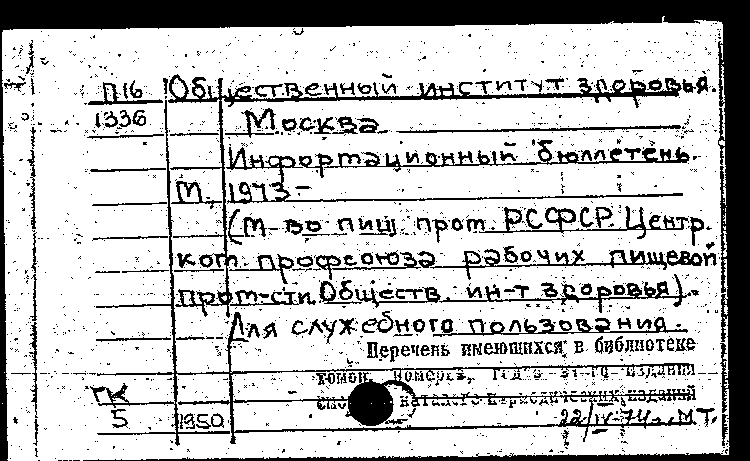 П16 Общественный институт здоровья.
1336 Москва
Информационный бюллетень.
М., 1973 –
(М-во пищ. пром. РСФСР. Центр.
ком. профсоюза рабочих пищевой
пром-сти. Обществ. ин-т здоровья).
Для служебного пользования.
Перечень имеющихся в библиотеке
томов, номеров, года издания
каталоге периодических изданий
ГК
5 1950 22/IV-74г. М.Т.